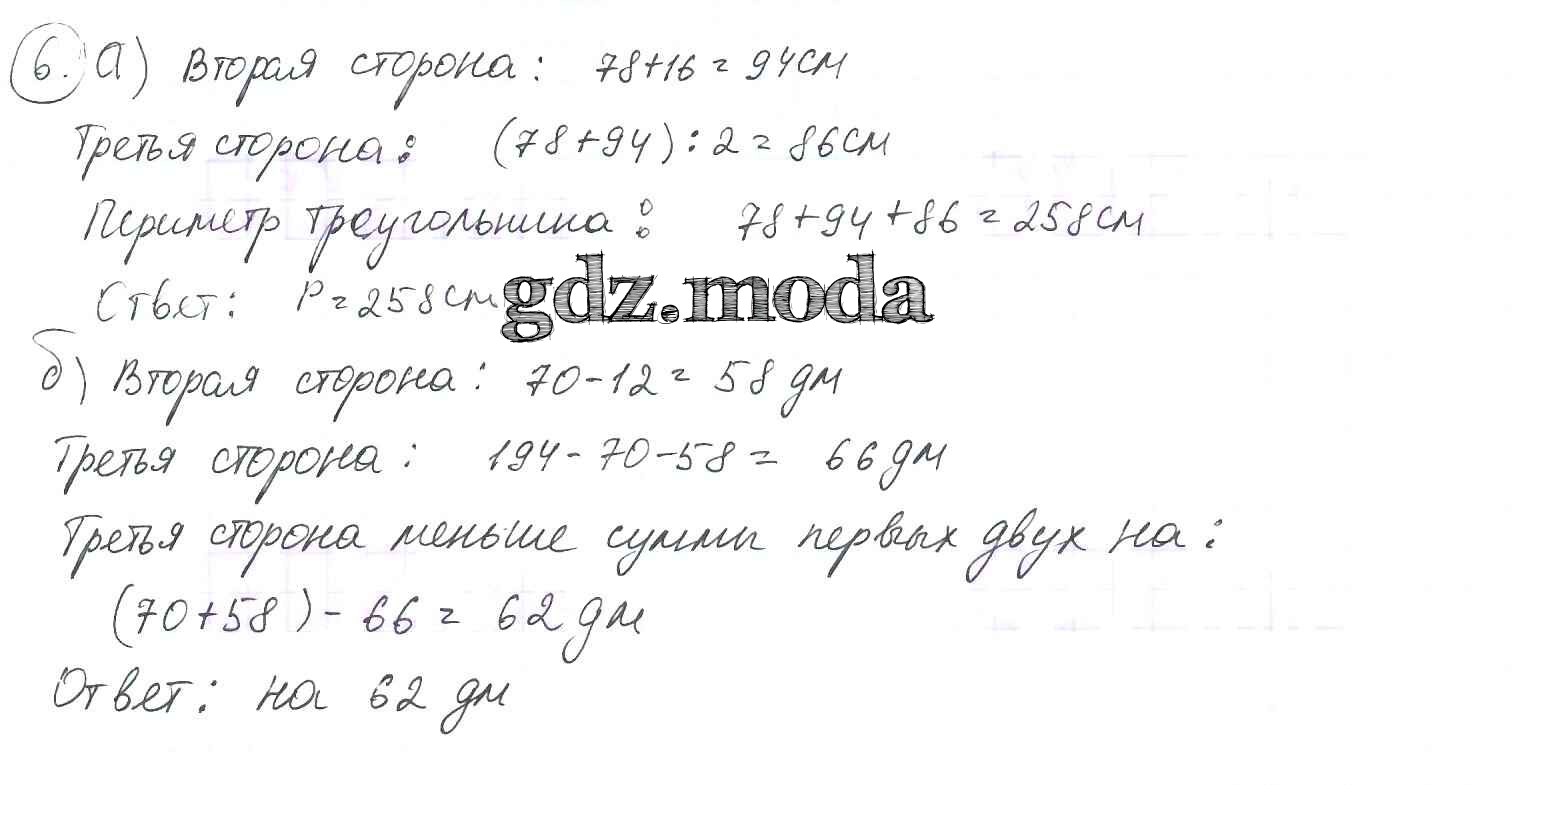 6. а) Вторая сторона: 78+16=94см
Третья сторона: (78+94):2=86см
Периметр треугольника: 78+94+86=258см
Ответ: P=258см
gdz.moda
б) Вторая сторона: 70-12=58 дм
Третья сторона: 194-70-58= 66 дм
Третья сторона меньше суммы первых двух на:
(70+58)-66= 62 дм
Ответ: на 62 дм